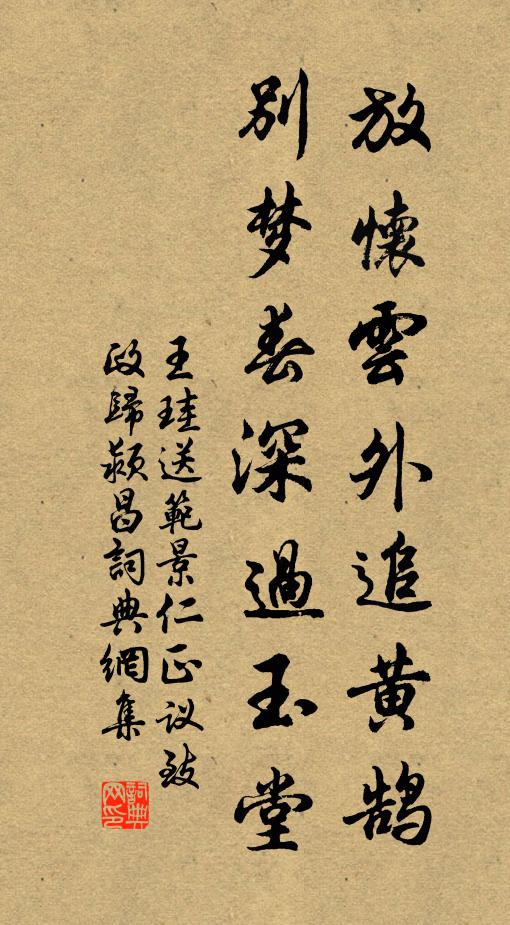 放懷雲外追黃鵠
別梦春深過玉堂
王珪送範景仁正议致
政歸潁昌詞典網集
詞典
网印